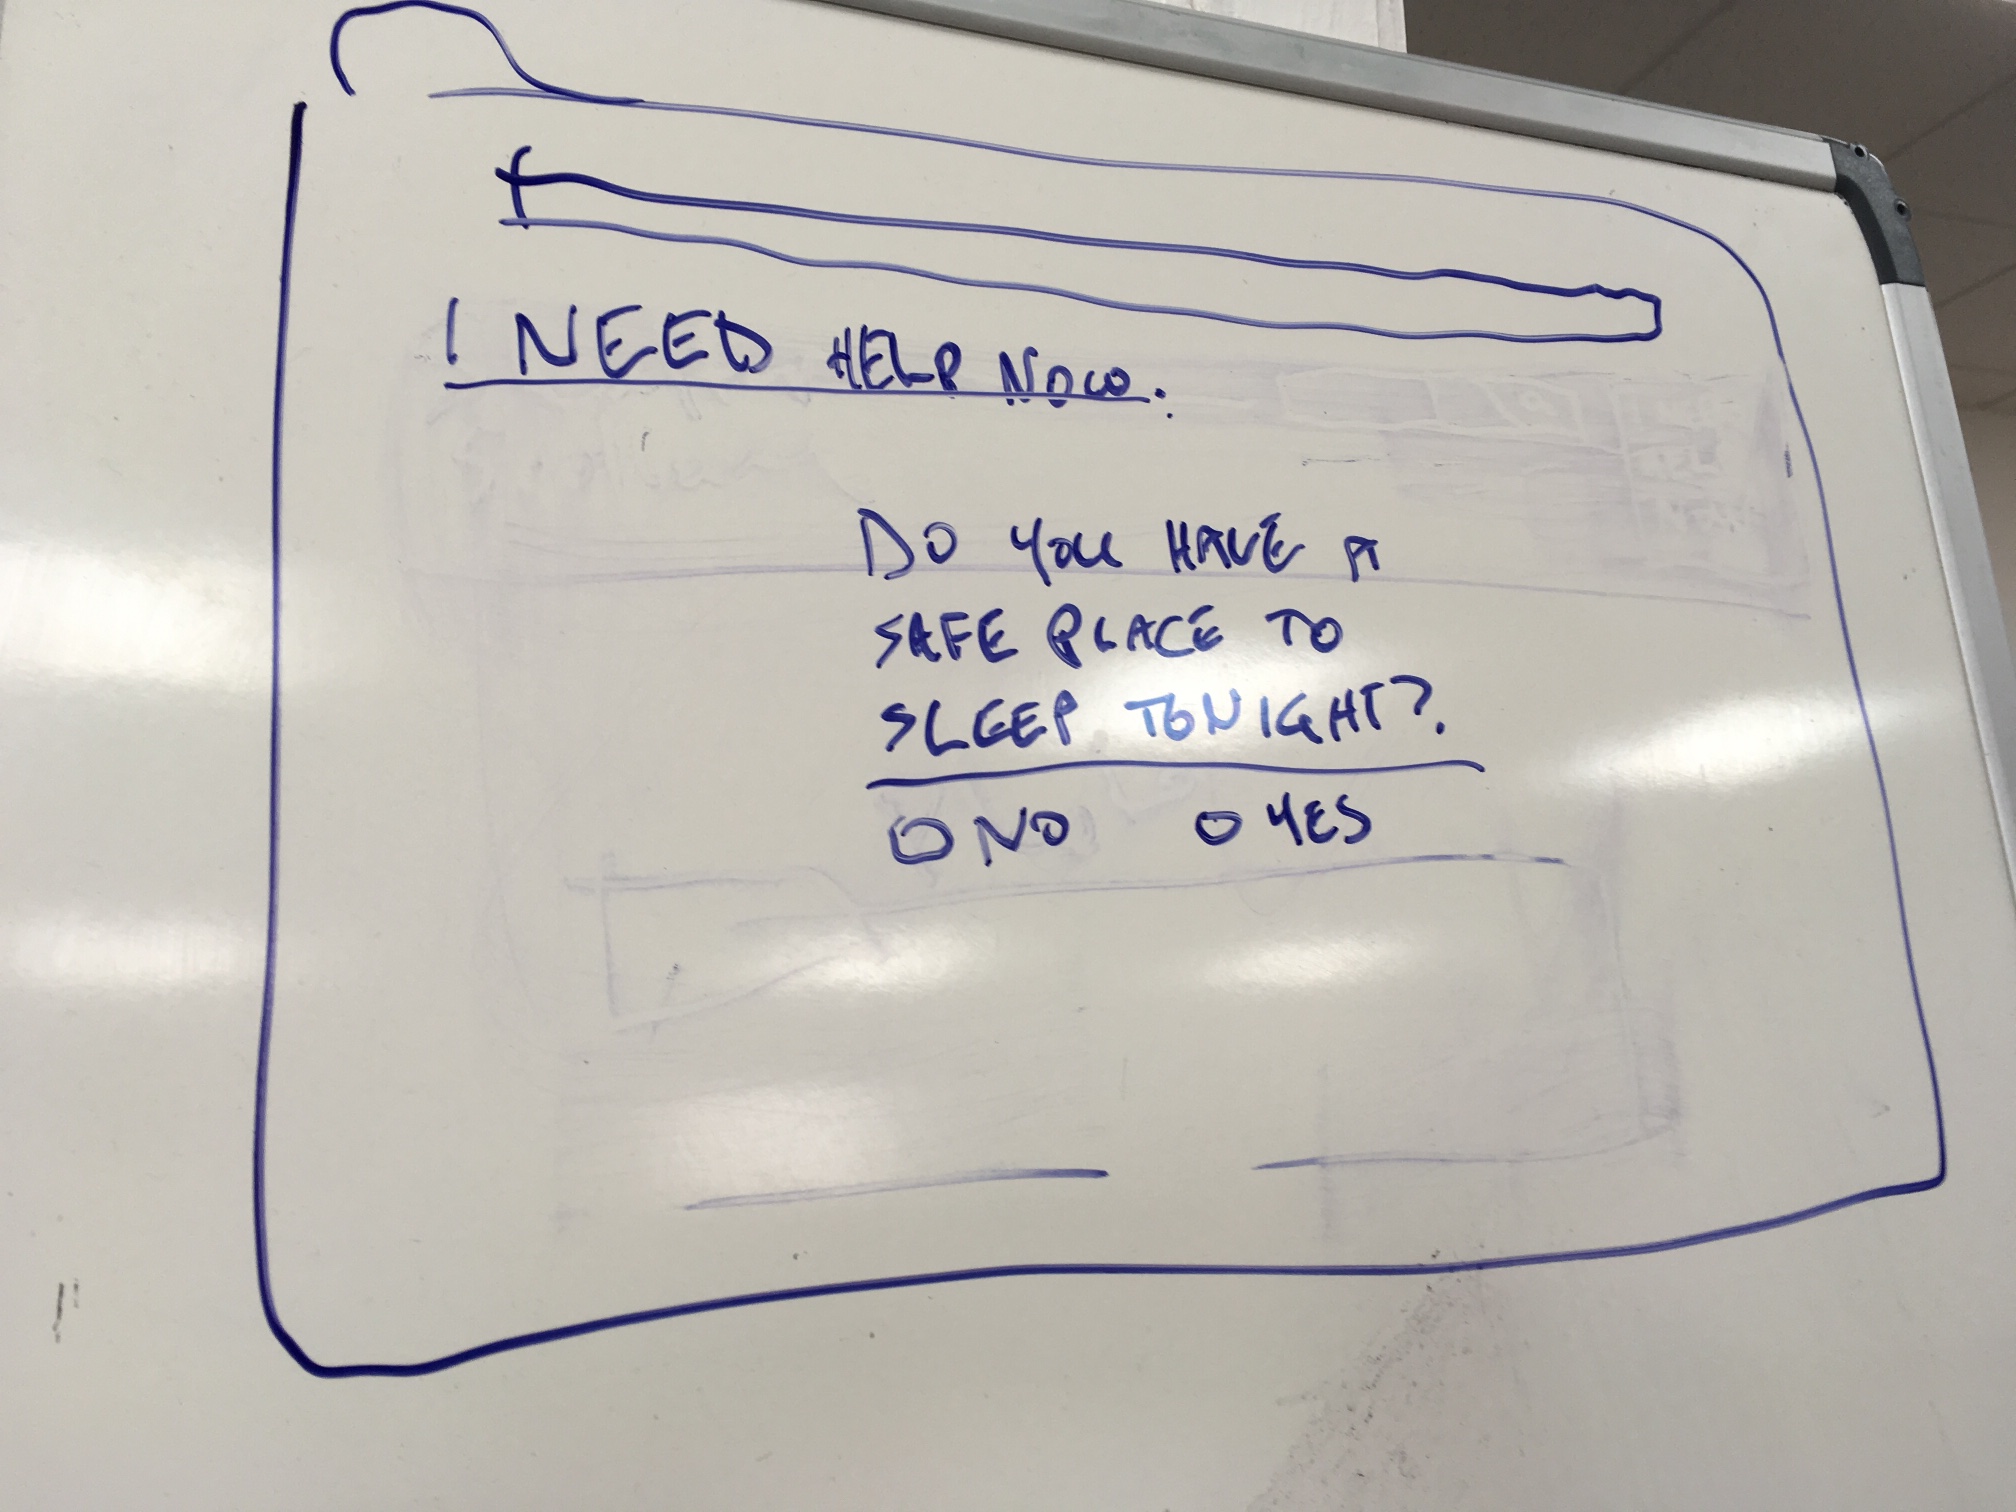 I NEED HELP NOW.
DO YOU HAVE A
SAFE PLACE TO
SLEEP TONIGHT?
NO YES